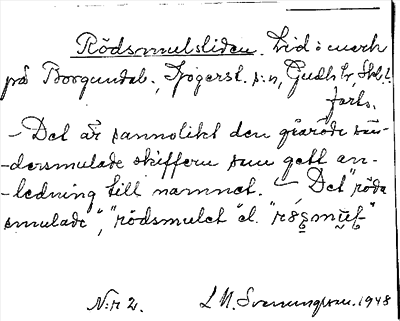 Rödsmulsliden. Lid i mark
på Borgundab., Sjögerst. s:n, Gudh. hr, Skb. l.
forts.
- Det är sannolikt den gråröde sön-
-dersmulade skiffern som gett an-
-ledning till namnet. - Det "röda
smulade", "rödsmulet" el.
N:r 2. L M. Svenungsson. 1948